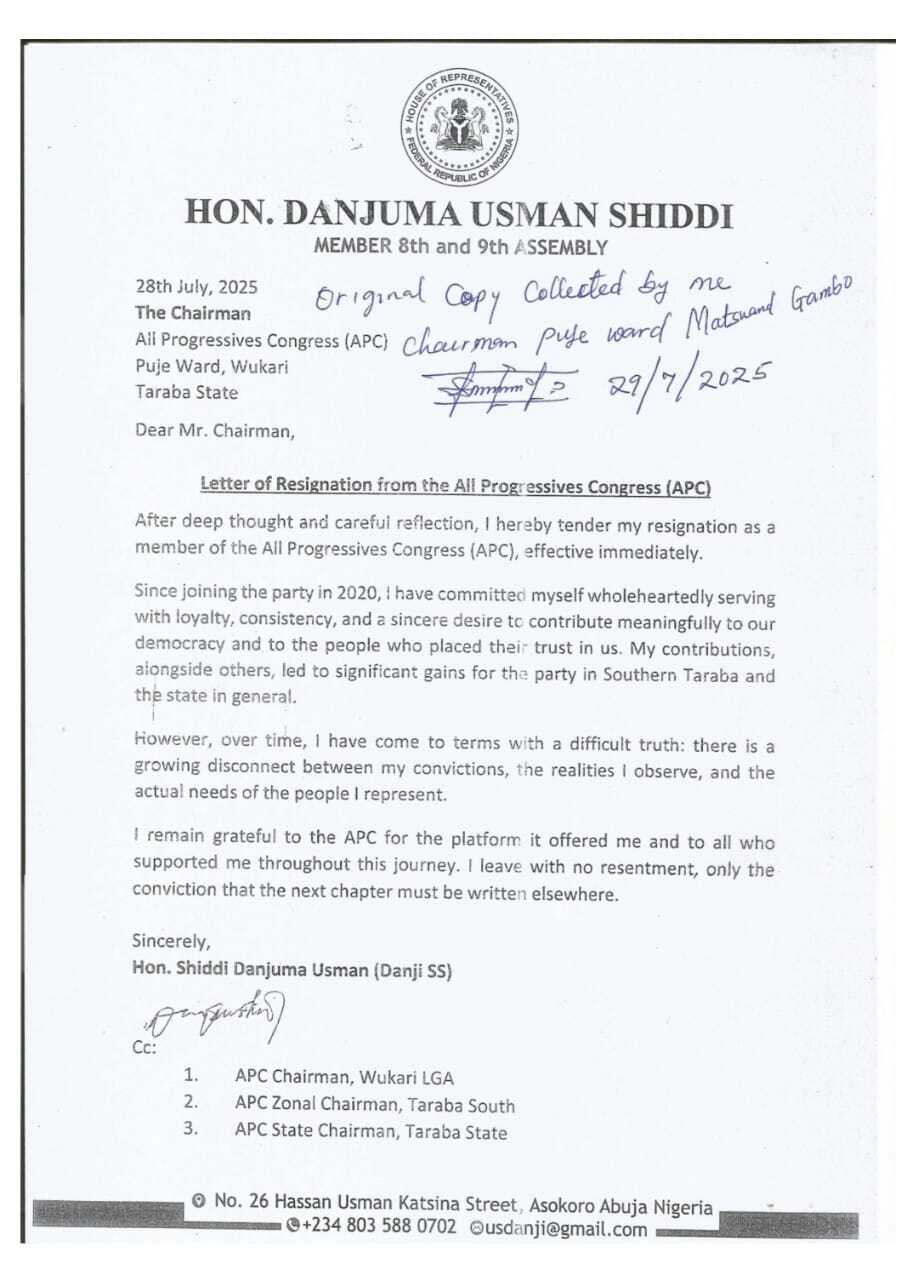 HOUSE OF REPRESENTATIVES
FEDERAL REPUBLIC OF NIGERIA
HON. DANJUMA USMAN SHIDDI
MEMBER 8th and 9th ASSEMBLY
28th July, 2025
The Chairman
All Progressives Congress (APC)
Puje Ward, Wukari
Taraba State
Original Copy Collected by me
Chairman Puje ward Matswand Gambo
29/7/2025
Dear Mr. Chairman,
Letter of Resignation from the All Progressives Congress (APC)
After deep thought and careful reflection, I hereby tender my resignation as a
member of the All Progressives Congress (APC), effective immediately.
Since joining the party in 2020, I have committed myself wholeheartedly serving
with loyalty, consistency, and a sincere desire to contribute meaningfully to our
democracy and to the people who placed their trust in us. My contributions,
alongside others, led to significant gains for the party in Southern Taraba and
the state in general.
However, over time, I have come to terms with a difficult truth: there is a
growing disconnect between my convictions, the realities I observe, and the
actual needs of the people I represent.
I remain grateful to the APC for the platform it offered me and to all who
supported me throughout this journey. I leave with no resentment, only the
conviction that the next chapter must be written elsewhere.
Sincerely,
Hon. Shiddi Danjuma Usman (Danji SS)
Cc:
1. APC Chairman, Wukari LGA
2. APC Zonal Chairman, Taraba South
3. APC State Chairman, Taraba State
No. 26 Hassan Usman Katsina Street, Asokoro Abuja Nigeria
+234 803 588 0702 usdanji@gmail.com